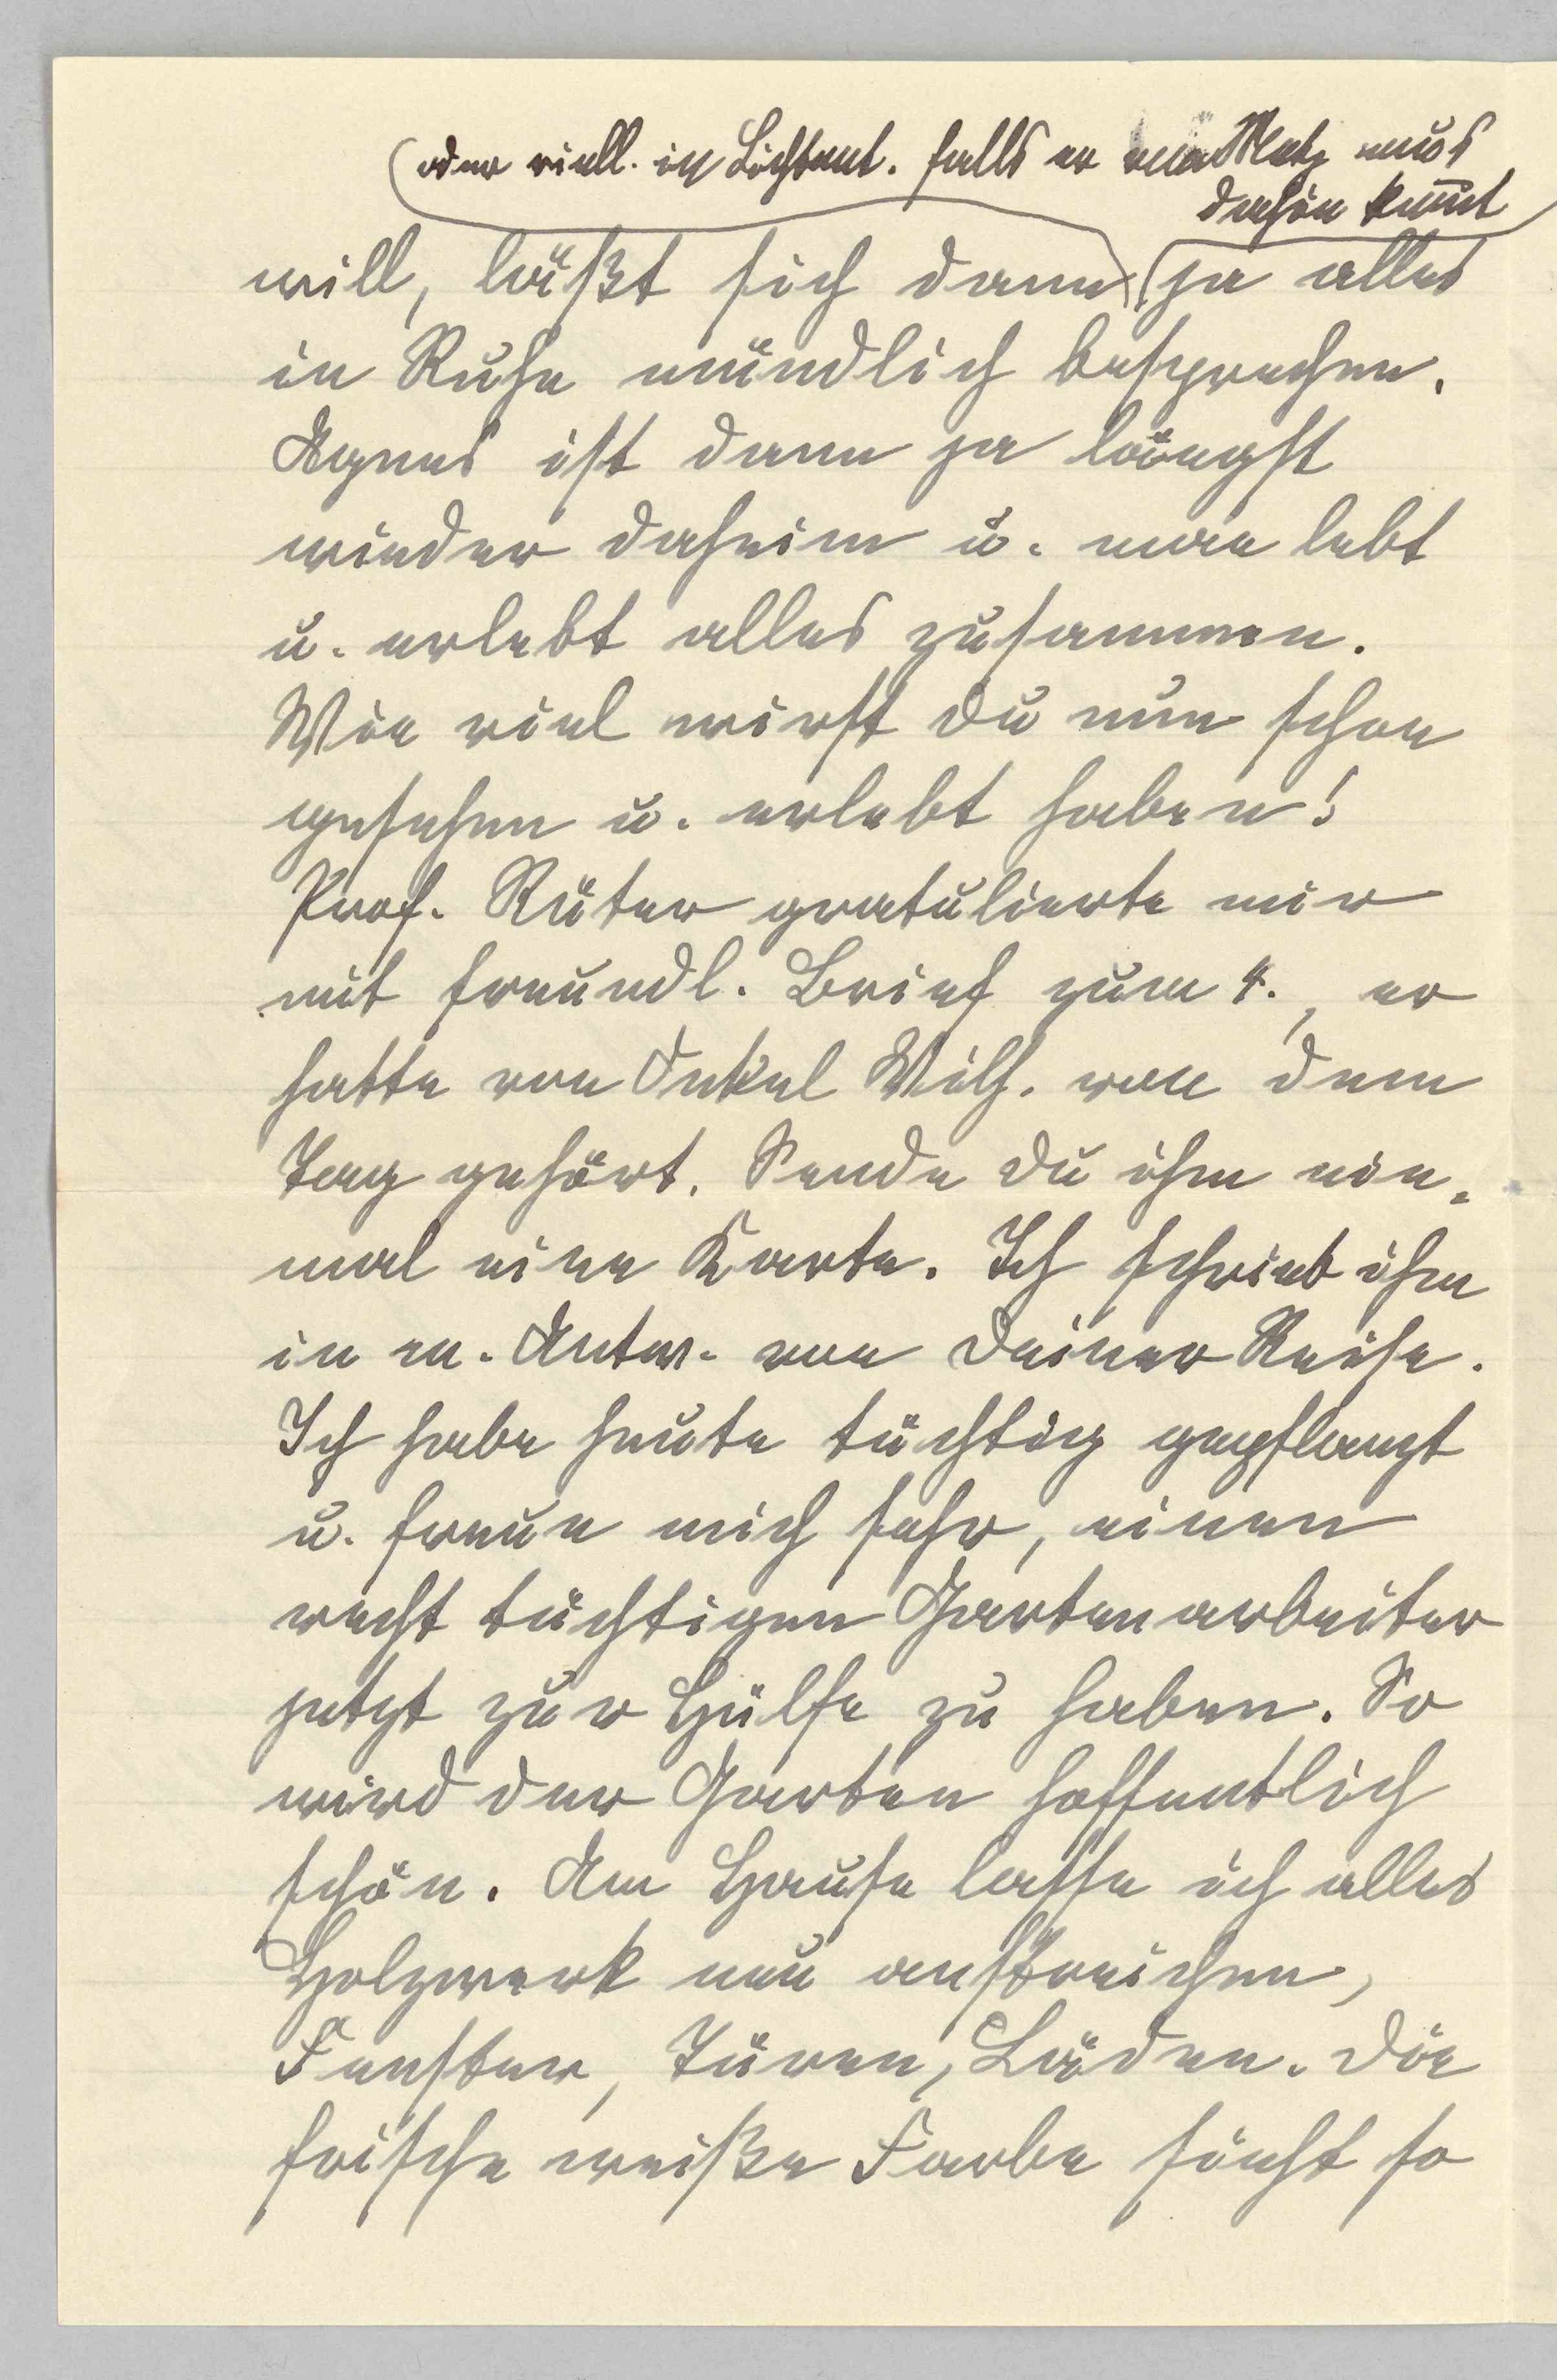 (oder viell. in Lichtent. falls er von Metz aus
dahin kommt)
will, läßt sich dann ja alles
in Ruhe mündlich besprechen.
Agnes ist dann ja längst
wieder daheim u. man lebt
u. erlebt alles zusammen.
Wie viel wirst Du nun schon
gesehen u. erlebt haben!
Prof. Rüter gratulierte mir
mit freundl. Brief zum 4., er
hatte von Onkel Wilh. von dem
Tag gehört. Sende Du ihm ein-
mal eine Karte. Ich schrieb ihm
in m. Antw. von Deiner Reise.
Ich habe heute tüchtig gepflanzt
u. freue mich sehr, einen
recht tüchtigen Gartenarbeiter
jetzt zur Hülfe zu haben. So
wird der Garten hoffentlich
schön. Am Hause lasse ich alles
Holzwerk neu anstreichen,
Fenster, Türen, Läden. Die
frische weiße Farbe sieht so